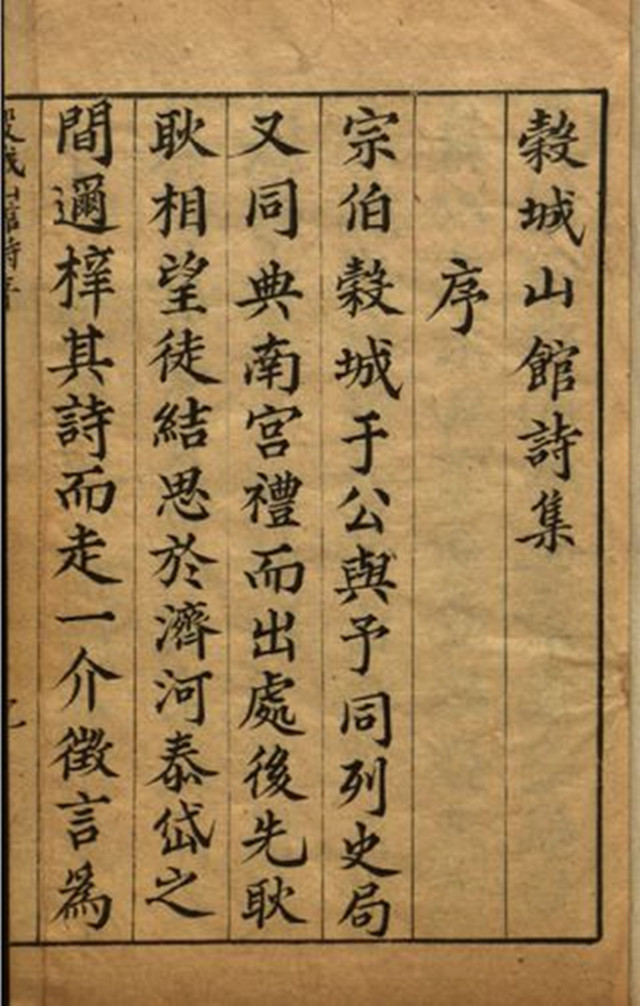 穀城山館詩集
序
宗伯穀城于公與予同列史局
又同典南宮禮而出處後先耿
耿相望徒結思於濟河泰岱之
間邇梓其詩而走一介徵言為